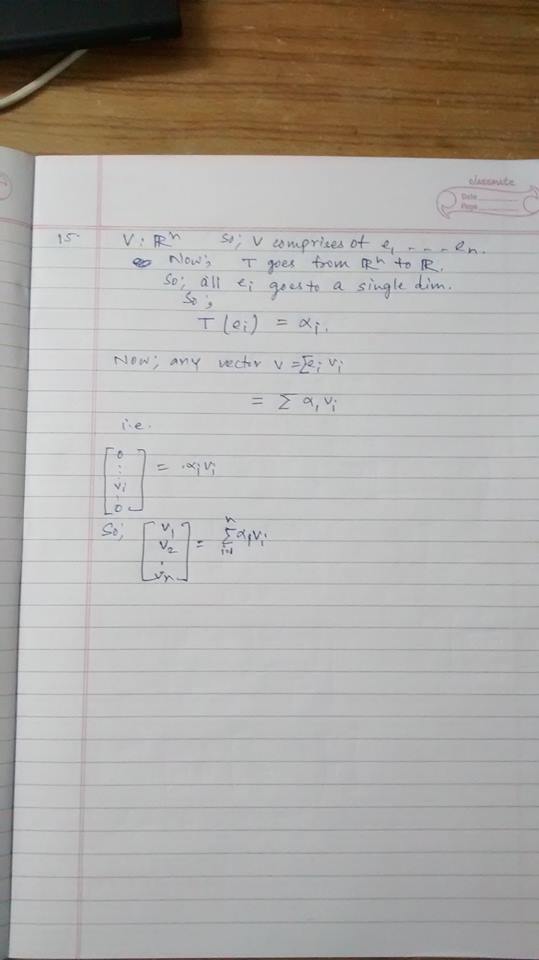 classmate
Date
Page
15. V: ℝⁿ So; V comprises of e₁ --- eₙ.
Now; T goes from ℝⁿ to ℝ.
So; all eᵢ goes to a single dim.
So;
T(eᵢ) = αᵢ.
Now; any vector v = Σeᵢ vᵢ
= Σ αᵢ vᵢ
i.e.
[0 : vᵢ : 0] = αᵢvᵢ
So; [v₁ v₂ . vₙ] = Σⁿᵢ₌₁ αᵢvᵢ